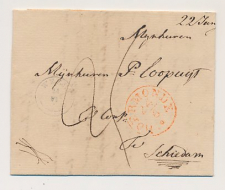 22 Juny
Mijnheeren
Mijnheeren P. Loopuyt
& Comp
Te
Schiedam